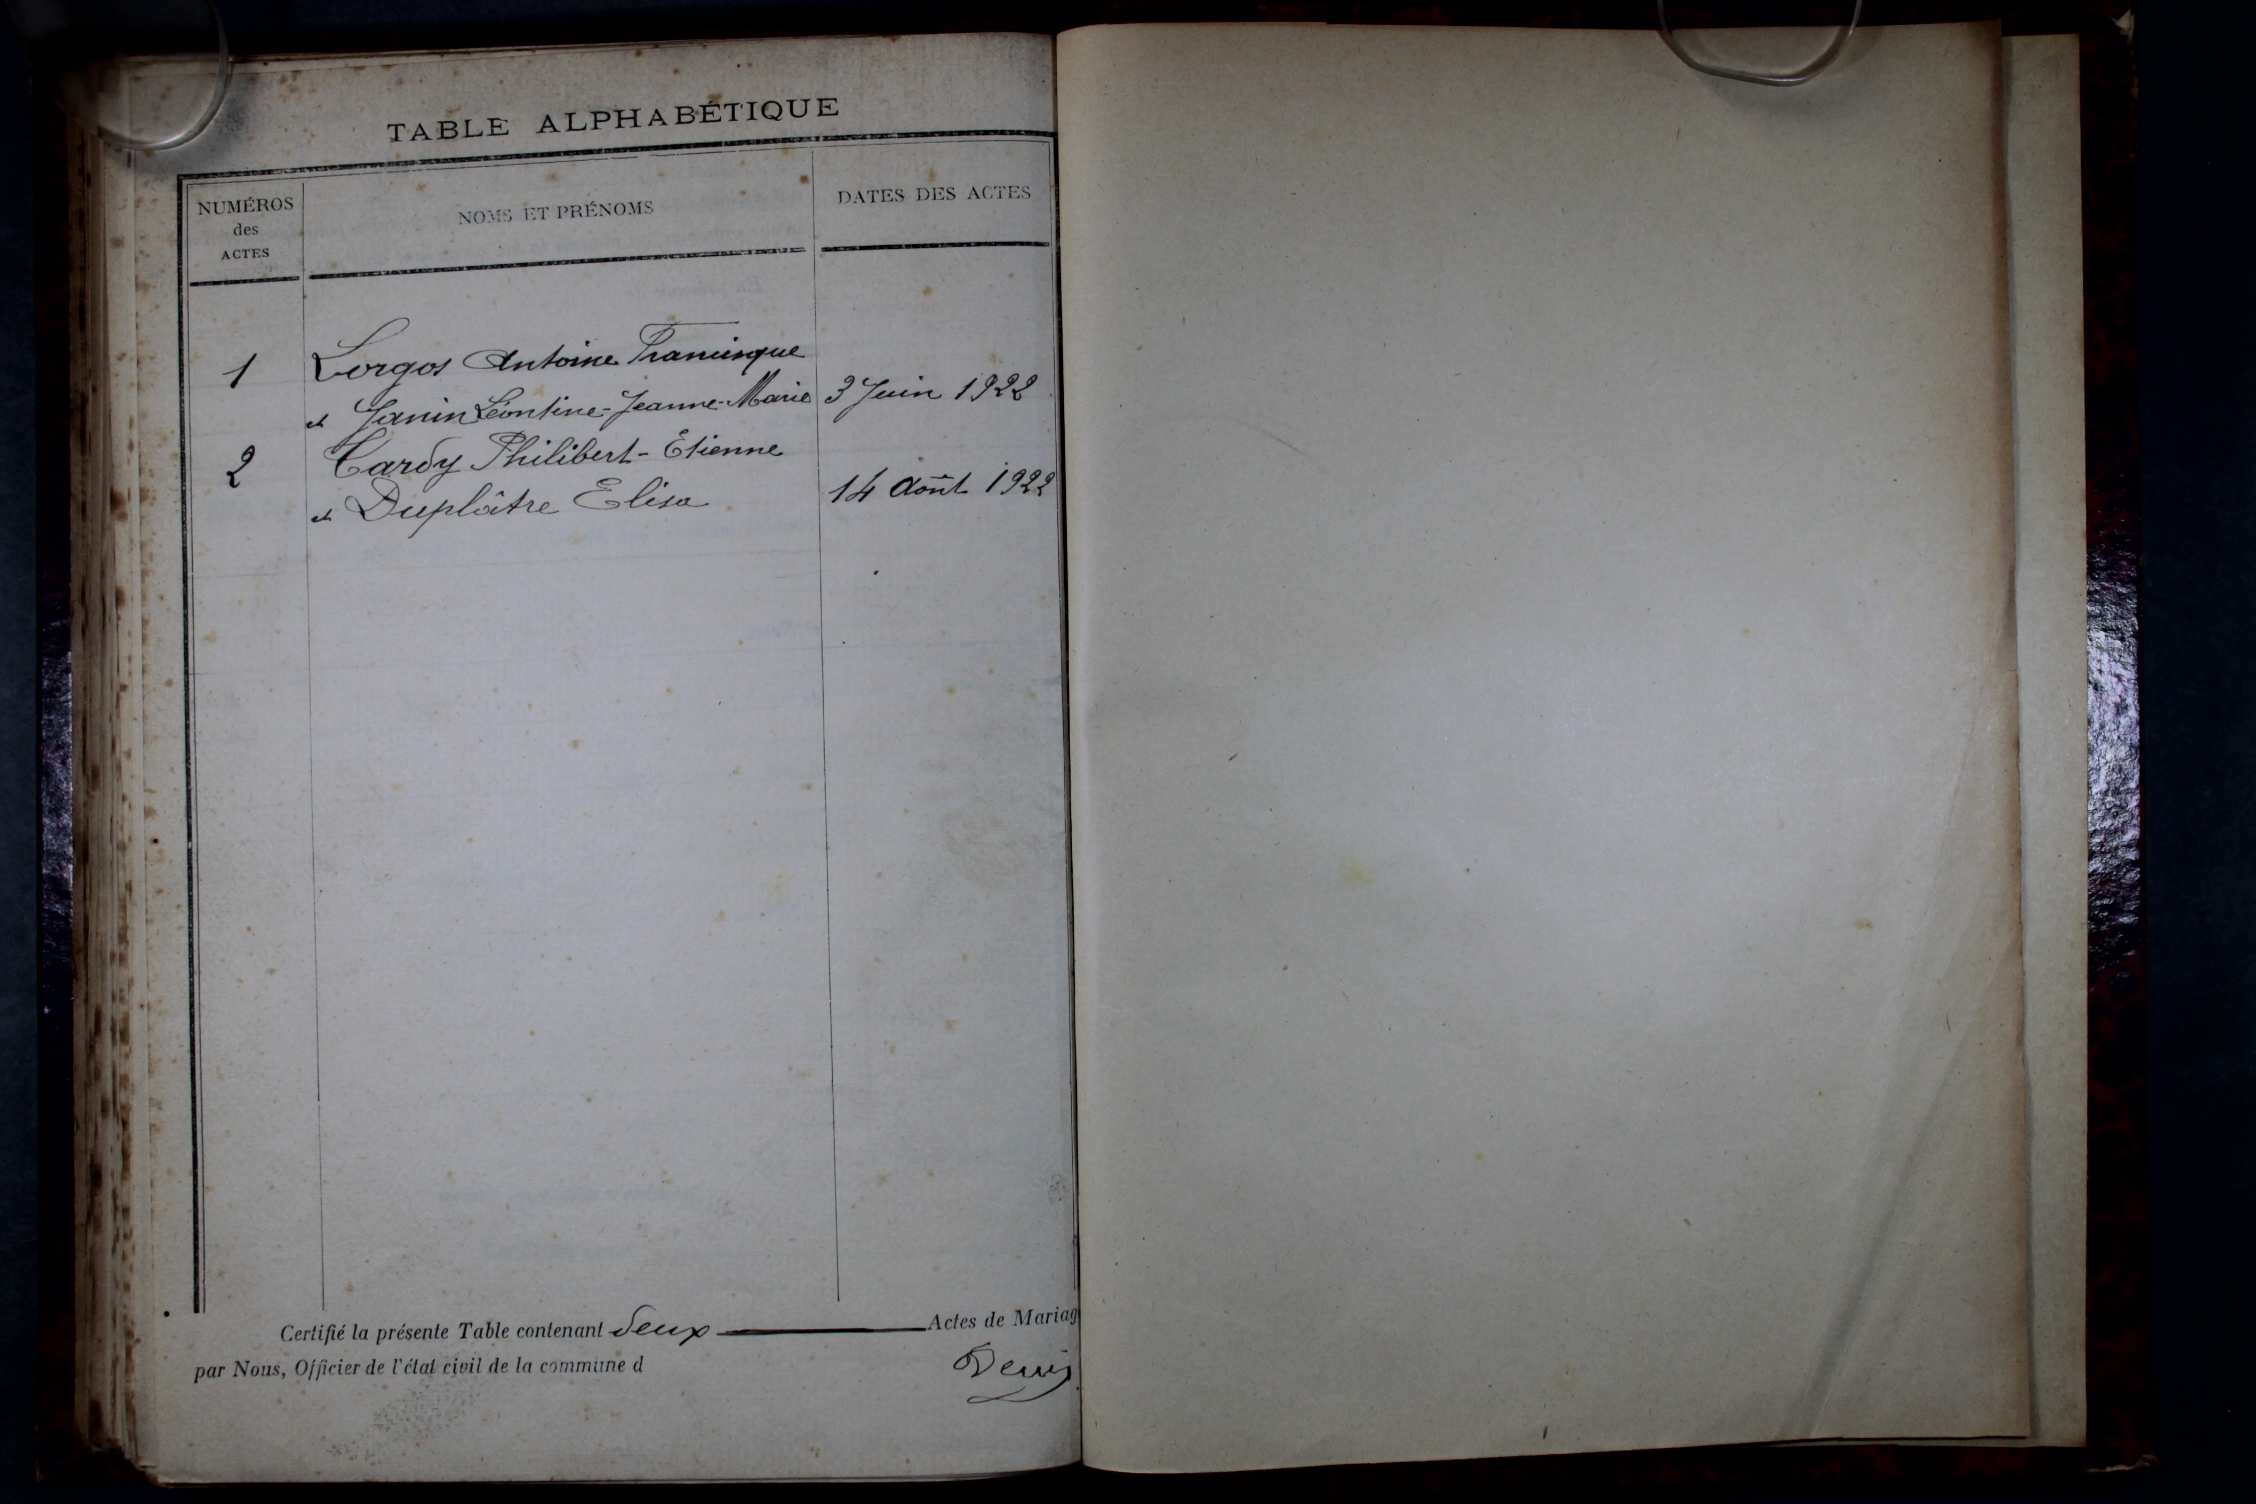 TABLE ALPHABÉTIQUE
NUMÉROS
des
ACTES
NOMS ET PRÉNOMS
DATES DES ACTES
1
Lorgos Antoine Francisque
et Janin Léontine-Jeanne-Marie
3 Juin 1922
2
Cardy Philibert-Etienne
et Duplâtre Elisa
14 Août 1922
Certifié la présente Table contenant deux Actes de Mariag
par Nous, Officier de l'état civil de la commune d
Denis